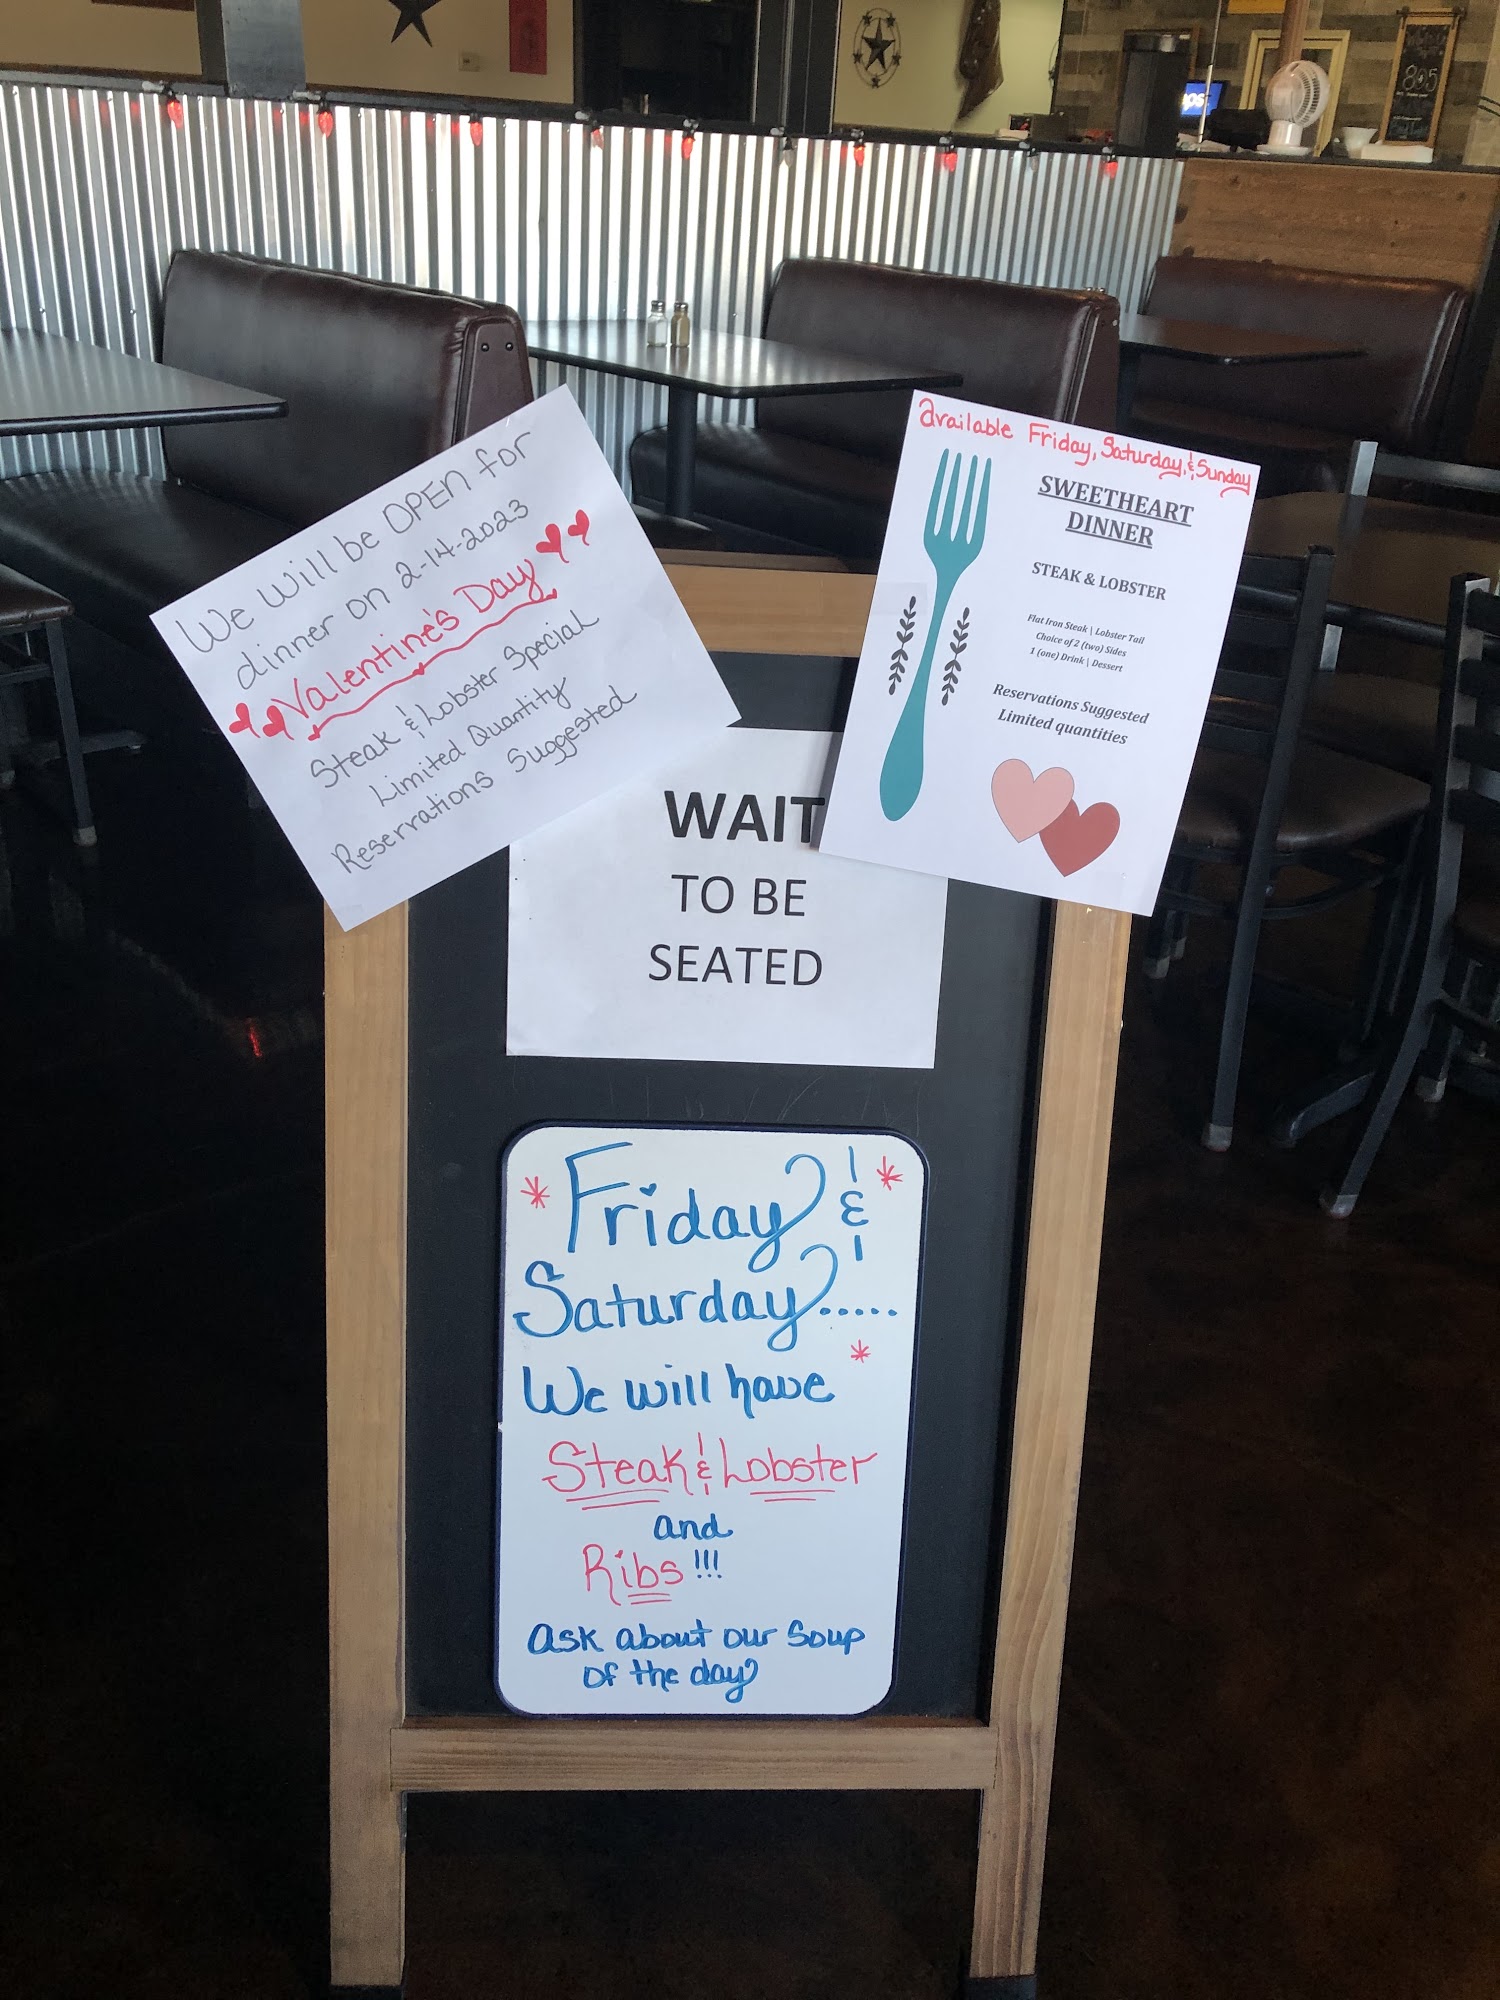 We will be OPEN for
dinner on 2-14-2023
Valentine's Day
Steak & Lobster Special
Limited Quantity
Reservations Suggested
available Friday, Saturday, & Sunday
SWEETHEART
DINNER
STEAK & LOBSTER
Flat Iron Steak | Lobster Tail
Choice of 2 (two) Sides
1 (one) Drink | Dessert
Reservations Suggested
Limited quantities
WAIT
TO BE
SEATED
* Friday & *
Saturday.....
*
We will have
Steak & Lobster
and
Ribs !!!
ask about our Soup
of the day
805